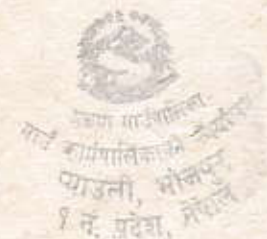 गाउँपालिका
गाउँ कार्यपालिकाको कार्यालय
प्याउली, भोजपुर
१ नं. प्रदेश, नेपाल